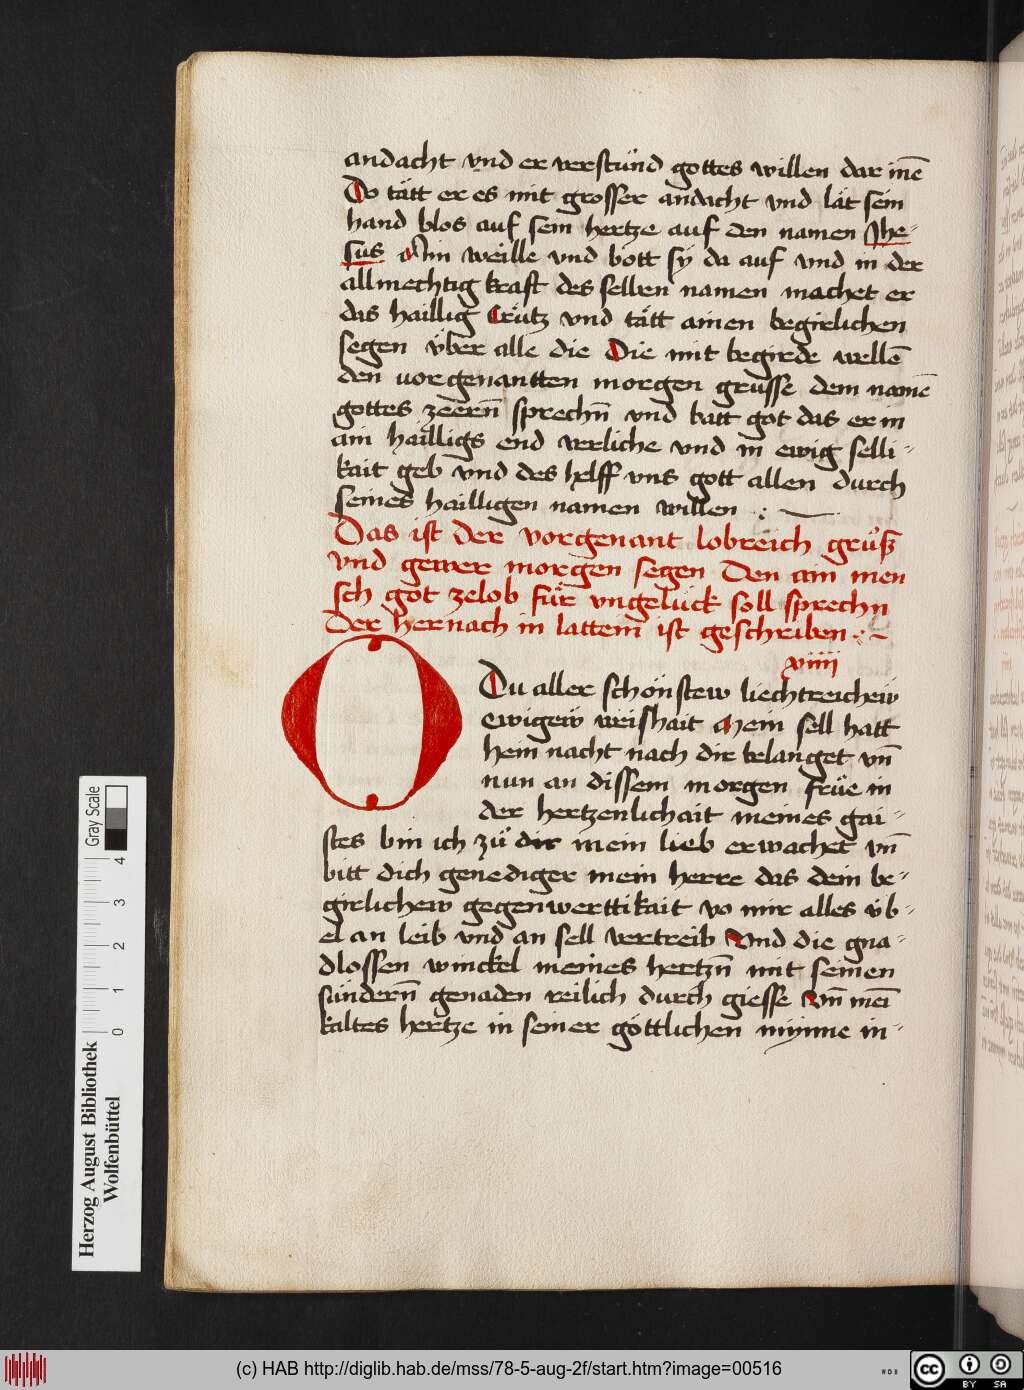 andacht vnd er verstůnd gottes willen dar inē
Do tått er es mit grosser andacht vnd låt sein
hand blos auf sein hertze auf den namen Jhe-
sus Ain weille vnd bott sÿ da auf vnd in der
allmechtig kraft des selben namen machet er
das haillig Crütz vnd tått ainen begirlichen
segen über alle die Die mit begirde wellē
den vorgenantten morgen grüsse dem namē
gottes zeern̄ sprechn̄ vnd batt got das er in
ain hailligs end verliche vnd in ewig selli-
kait geb vnd des helff vns gott allen durch
seines hailligen namen willen
Das ist der vorgenant lobreich grůß
vnd gewer morgen segen Den ain men
sch got zelob für vngelück soll sprechn
Der hernach in lattein ist geschriben
viiii
O
Du aller schönstew liechtreichew
ewigew weishait Mein sell hatt
hein nacht nach dir belanget vn̄
nun an dissem morgen früe in
der hertzenlichait meines gai-
stes bin ich zů dir mein lieb erwachet vn̄
bitt dich genediger mein herre das dein be-
girlichew gegenwerttikait vo mir alles üb-
el an leib vnd an sell vertreib Vnd die gna-
dlossen winckel meines hertzn̄ mit seinen
sundern̄ genaden reilich durch giesse Vn̄ mei
kaltes hertze in seiner göttlichen mynne in-
Herzog August Bibliothek
Wolfenbüttel
Gray Scale
0 1 2 3 4
(c) HAB http://diglib.hab.de/mss/78-5-aug-2f/start.htm?image=00516
WDB
cc BY SA